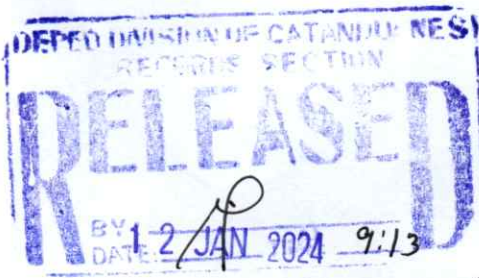 DEPED DIVISION OF CATANDUANES
RECORDS SECTION
RELEASED
BY
DATE: 12 JAN 2024 9:13